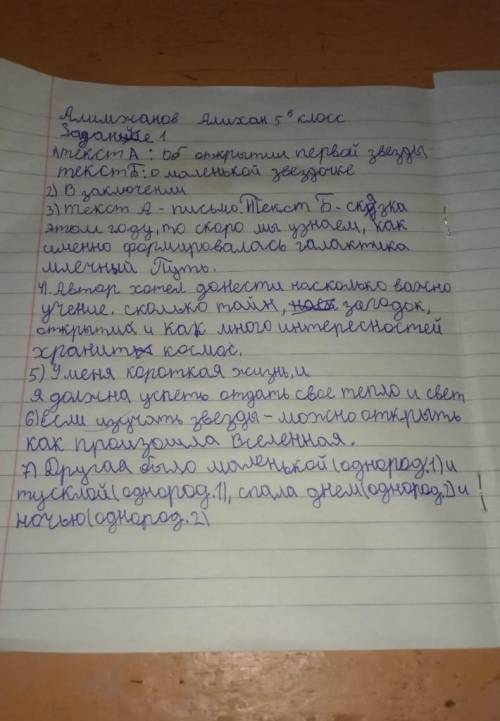 Алимжанов Алихан 5 в класс
Задание 1
1) текст А: Об открытии первой звезды
текст Б: о маленькой звездочке
2) В заключении
3) текст А - письмо. Текст Б - сказка
этом году, то скоро мы узнаем, как
именно формировалась галактика
млечный Путь.
4) Автор хотел донести насколько важно
учение. сколько тайн, загодок,
открытий и как много интересностей
хранить космос.
5) У меня короткая жизнь, и
я должна успеть отдать свое тепло и свет
6) если изучать звезды - можно открыть
как произошла Вселенная.
7) Другая было маленькой (однород.1) и
тусклой (однород.1), спала днем (однород.2) и
ночью (однород.2)